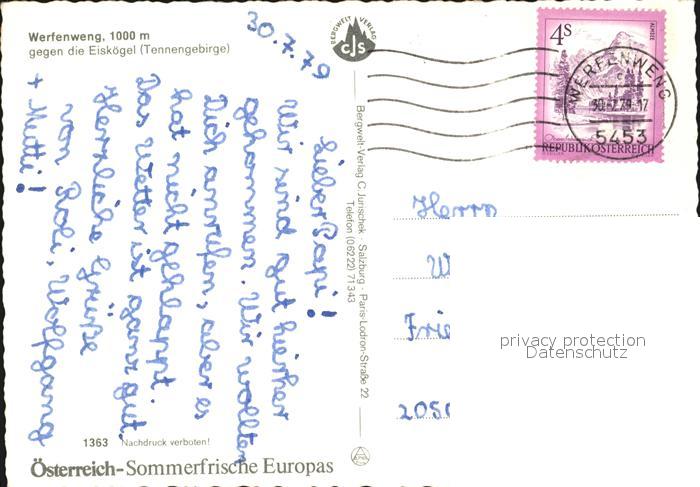 Werfenweng, 1000 m
gegen die Eiskögel (Tennengebirge)
30.7.79
Lieber Papi!
Wir sind gut hierher
gekommen. Wir wollten
Dich anrufen, aber es
hat nicht geklappt.
Das Wetter ist ganz gut.
Herzliche Grüße
von Robi, Wolfgang
+ Mutti!
1363 Nachdruck verboten!
Österreich-Sommerfrische Europas
BERGWELT VERLAG
CJS
Bergwelt-Verlag C. Jurischek · Salzburg · Paris-Lodron-Straße 22
Telefon (06222) 71343
4S
ALMSEE
REPUBLIK ÖSTERREICH
WERFENWENG
30.-7.79-17
5453
Herrn
W
Frie
205
privacy protection
Datenschutz